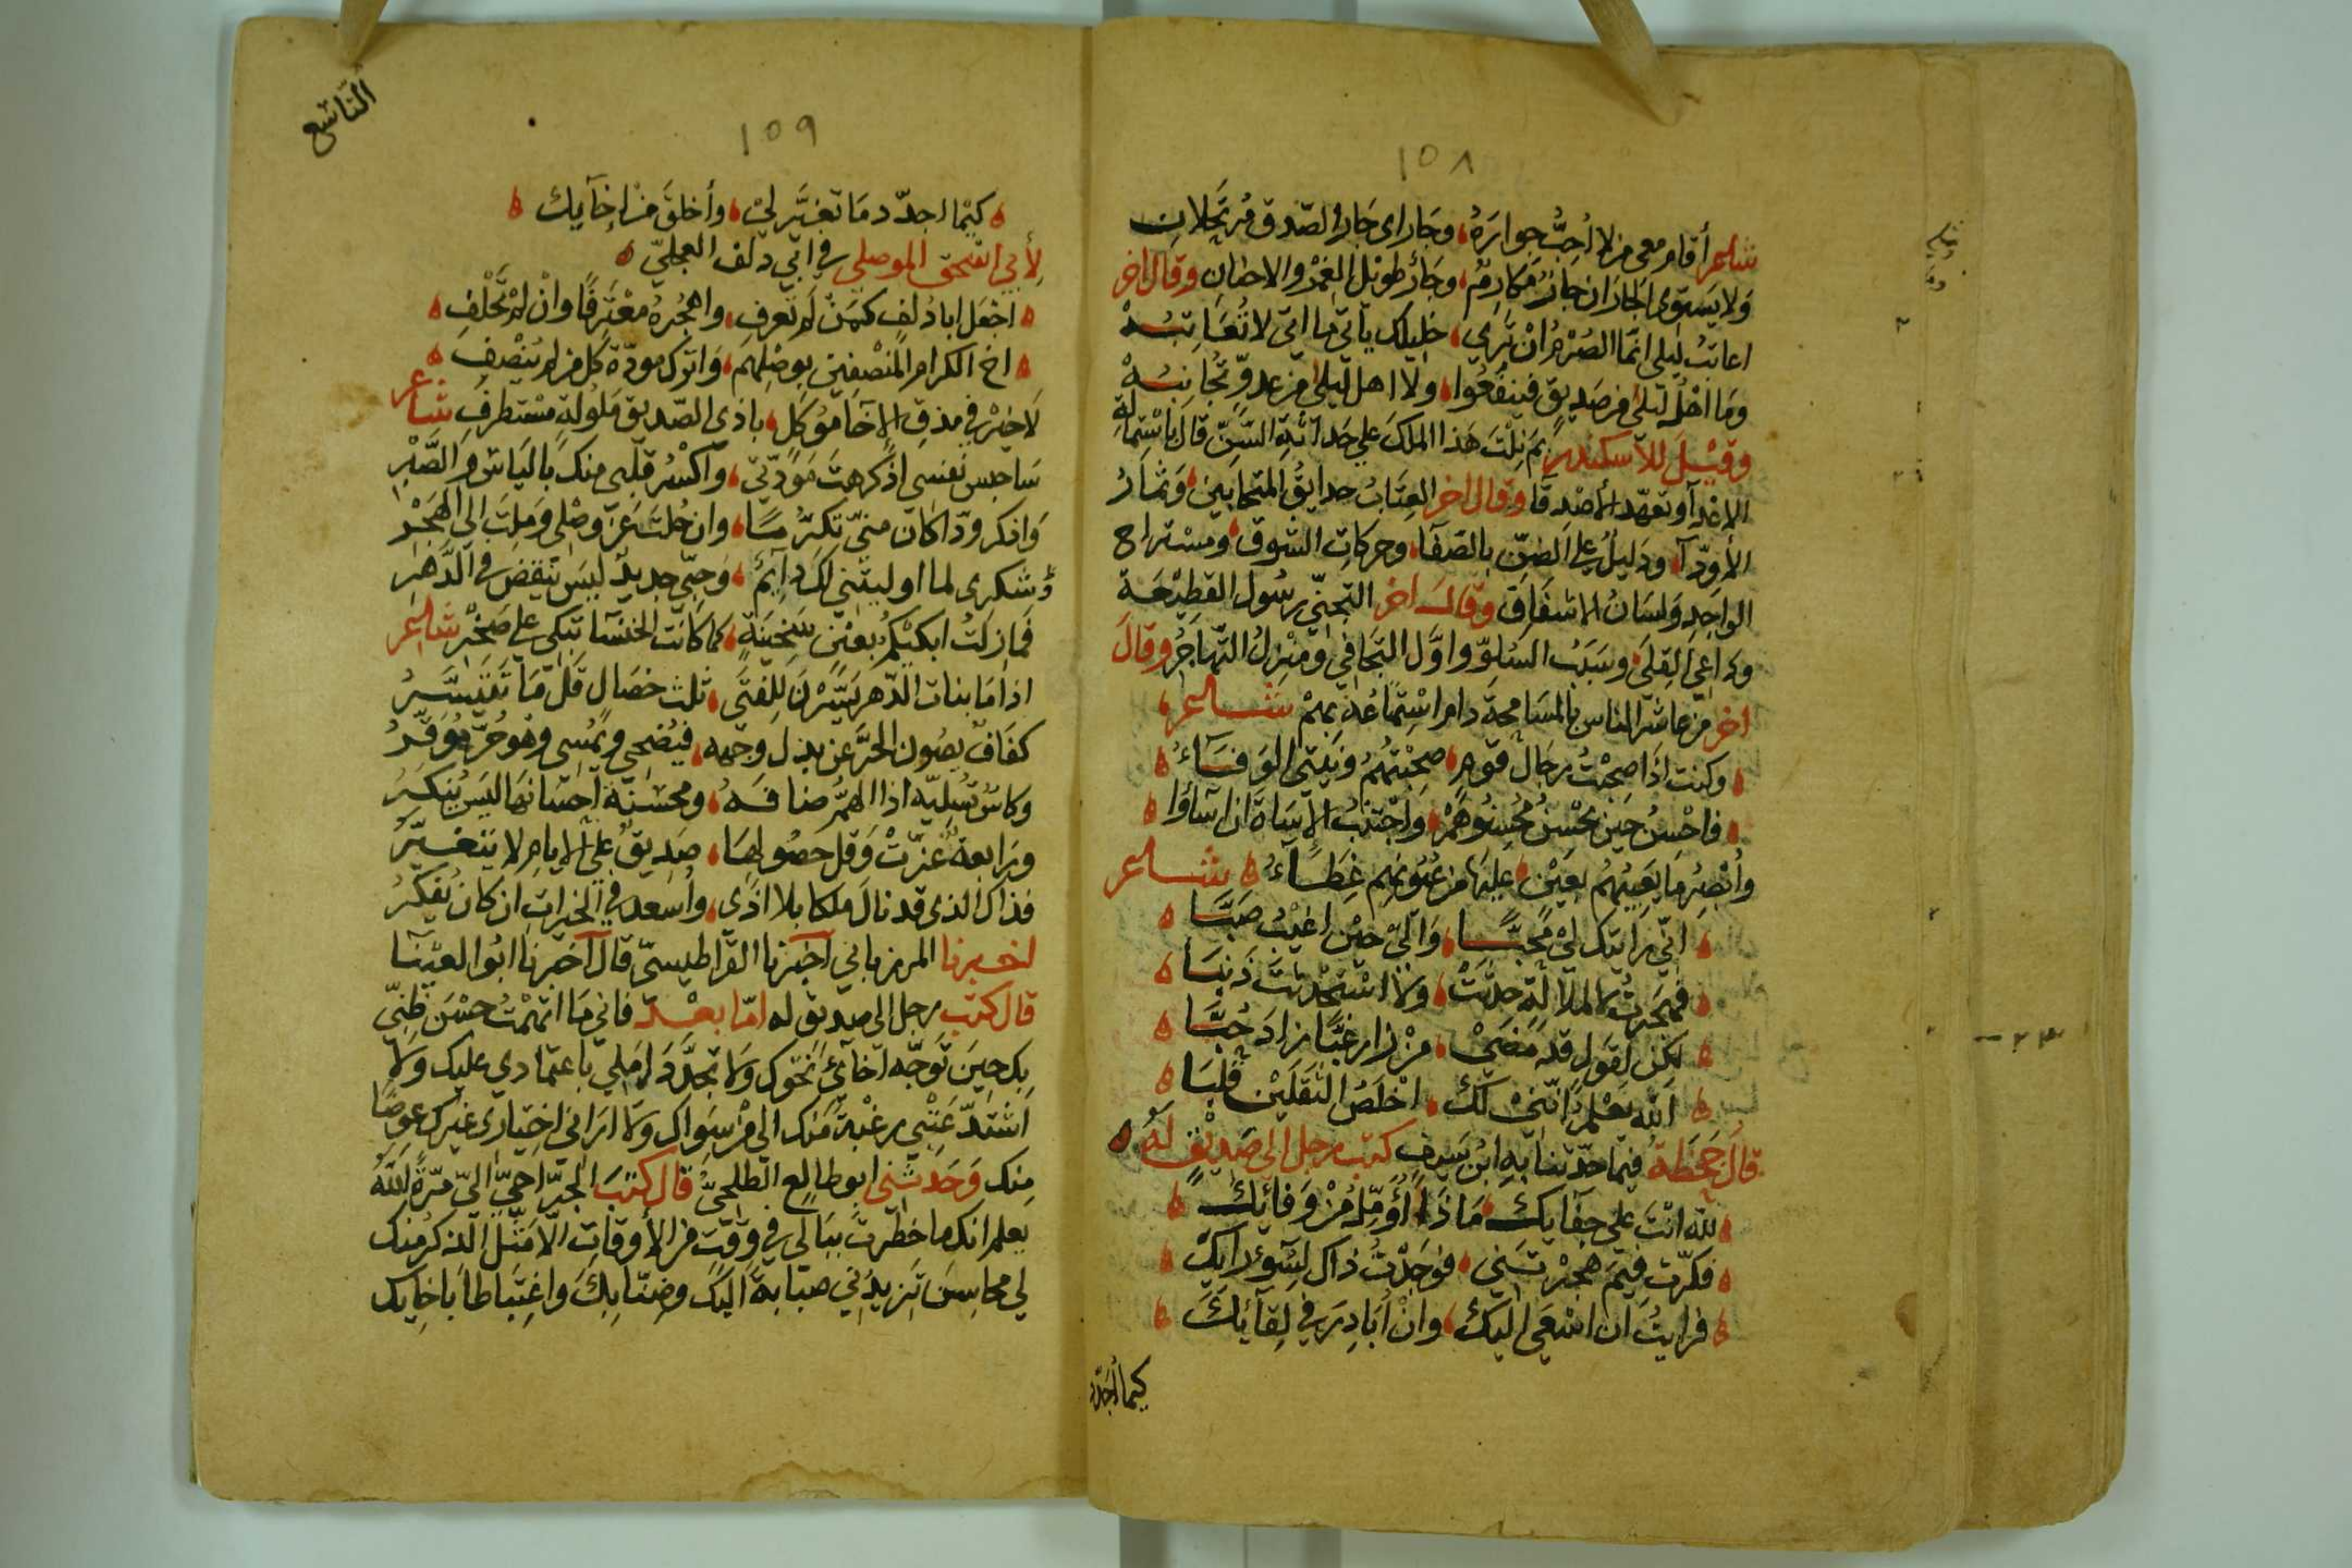 ١٥٨
شاعر أقام معى من لا أحب جواره، وجاراى جارا الصدق مرتحلان
ولا يستوى الجاران جار مكارم، وجار طويل الغمر والاحزان وقال اخر
اعاتب ليلى انما الصرم ان ترى، خليلك ياتى ما اتى لا تعاتبه
وما اهل ليلى من صديق فينفعوا، ولا اهل ليلى من عدو تجانبه
وقيل للاسكندر بم نلت هذا الملك على حداثة السن قال باستمالة
الاعدآ وتعهد الأصدقا وقال اخر العتاب حدايق المتحابين وثمار
الأودآ ودليل على الضن بالصفا، وحركات الشوق، ومستراح
الواجد ولسان الاشفاق وقال اخر التجنى رسول القطيعة
وداعى القلى، وسبب السلو واول التجافى ومنزل التهاجر وقال
اخر من عاشر الناس بالمسامحة دام استمتاعه بهم شاعر
وكنت اذا صحبت رجال قوم، صحبتهم ونيتى الوفآء
فاحسن حين يحسن محسنوهم، واجتنب الاساة ان اسآؤا
وأبصر ما يعيبهم بعين، عليها من عيونهم غطآء شاعر
انى رايتك لى محبا، والى حين اغيب صبا
فهجرت لا لملالة حدثت، ولا استحدثت ذنبا
لكن لقول قد مضى، من زار غبا زاد حبا
الله يعلم اننى لك، اخلص الثقلين قلبا
قال جحظة فيما حدثنا به ابن سيف كتب رجل الى صديق له
لله انت على جفايك، ماذا أؤمل من وفائك
فكرت فيم هجرتنى، فوجدت ذاك لسوء رايك
فرايت ان اسعى اليك، وان أبادر فى لقآئك
كيما أجدد
التاسع
١٥٩
كيما اجدد ما تغير لى، وأخلق من اخآيك
لأبى اسحق الموصلى فى ابى دلف العجلى
اجعل ابا دلف كمن لم تعرف، واهجره معترفا وان لم تخلف
اخ الكرام المنصفين بوصلهم، واترك مودة كل من لم ينصف
لا خير فى مذق الاخا موكل، باذى الصديق ملولة مستطرف شاعر
ساحبس نفسى اذ كرهت مودتى، واكسر قلبى منك بالياس والصبر
واذكر ودا كان منى تكرما، وان حلت عن وصلى وملت الى الهجر
وشكرى لما اوليتنى لك دايم، وحبى جديد ليس ينقض فى الدهر
فمازلت ابكيكم بعين سخينة، كما كانت الخنسا تبكى على صخر شاعر
اذا ما بنات الدهر يسرن للفتى، ثلث خصال قل ما تتيسر
كفاف يصون الحر عن بذل وجهه، فيضحى ويمسى وهو حر موقر
وكاس تسليه اذا الهم ضافه، ومحسنة احسانها ليس ينكر
ورابعة عزت وقل حصولها، صديق على الايام لا يتغير
فذاك الذى قد نال ملكا بلا اذى، واسعد فى الخيرات ان كان يفكر
اخبرنا المرزبانى اخبرنا القراطيسى قال اخبرنا ابو العينا
قال كتب رجل الى صديق له اما بعد فانى ما اتهمت حسن ظنى
بك حين توجه اخائى نحوك ولا تجدد املى باعتمادى عليك ولا
اشتد عتبى رغبة منك الى من سواك ولا ارانى اختيارى غيرك عوضا
منك وحدثنى ابو طالع الطلحى قال كتب الجراحى الى مرة الله
يعلم انك ما خطرت ببالى فى وقت من الأوقات الا مثل الذكر منك
لى محاسن تزيدنى صبابة اليك وضنا بك واغتباطا باخايك